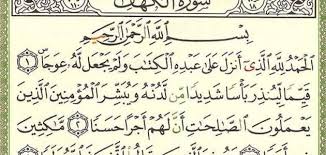 سورة الكهف
بِسْمِ اللَّهِ الرَّحْمَٰنِ الرَّحِيمِ
الْحَمْدُ لِلَّهِ الَّذِي أَنْزَلَ عَلَىٰ عَبْدِهِ الْكِتَابَ وَلَمْ يَجْعَلْ لَهُ عِوَجًا ۜ ١
قَيِّمًا لِيُنْذِرَ بَأْسًا شَدِيدًا مِنْ لَدُنْهُ وَيُبَشِّرَ الْمُؤْمِنِينَ الَّذِينَ
يَعْمَلُونَ الصَّالِحَاتِ أَنَّ لَهُمْ أَجْرًا حَسَنًا ٢ مَاكِثِينَ